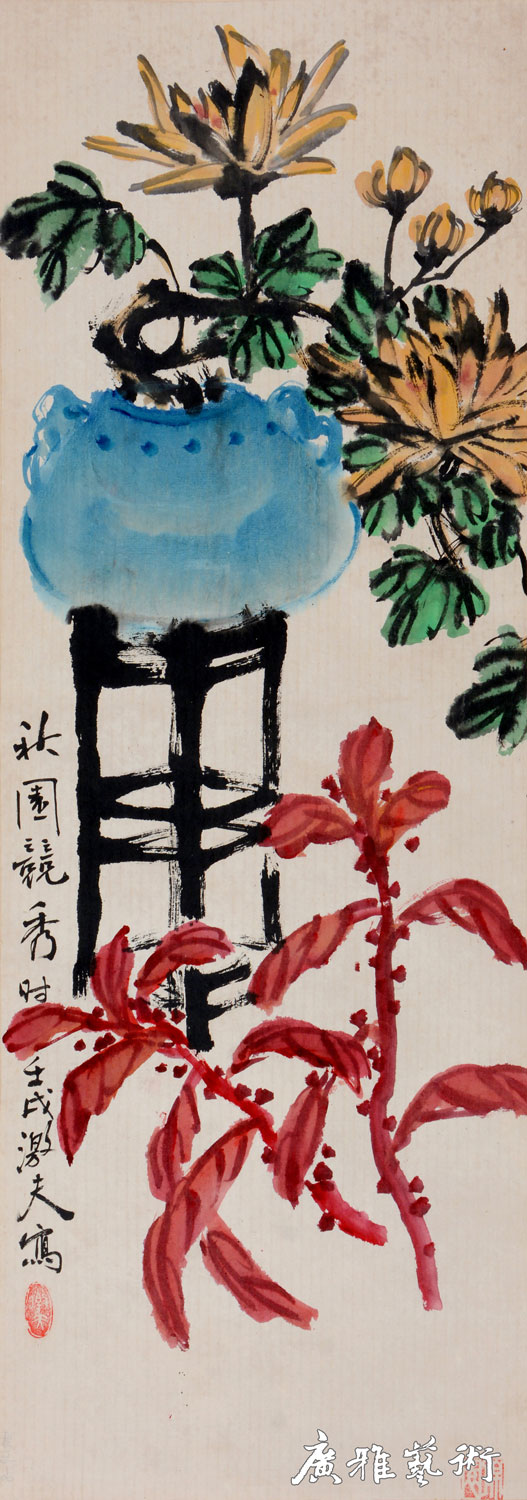 秋園競秀时
壬戌激夫寫
廣雅藝術